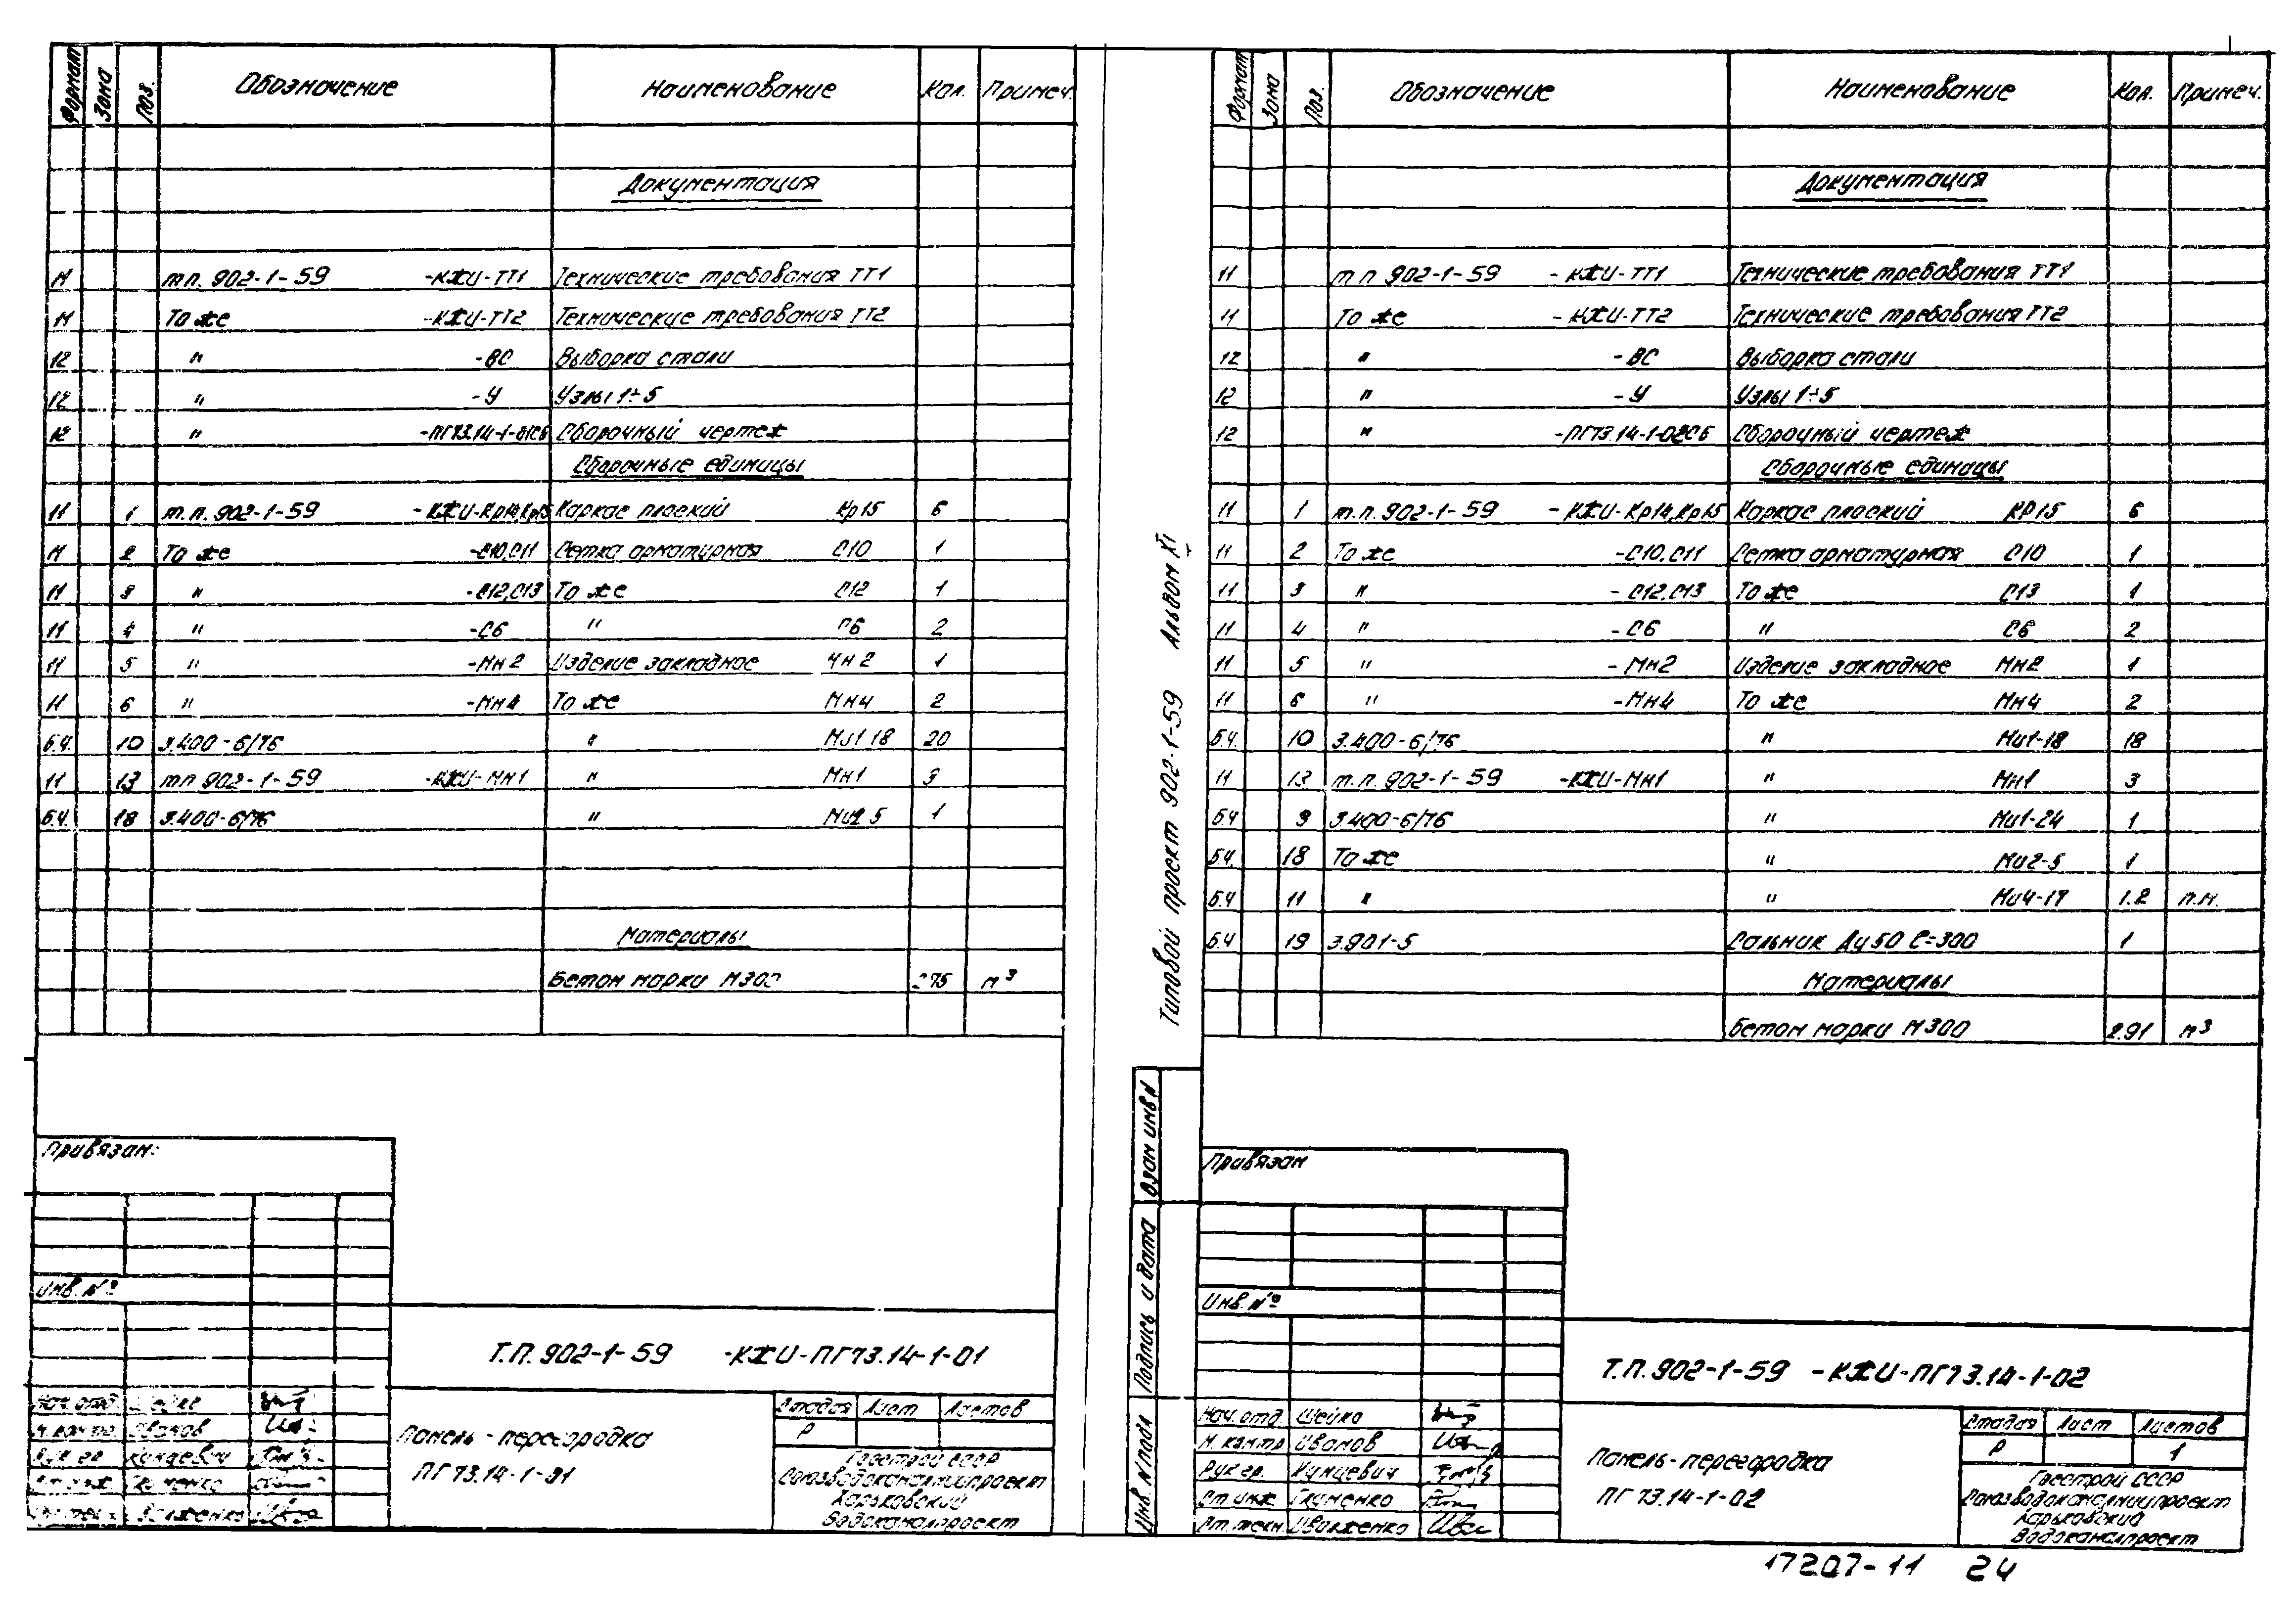 Формат Зона Поз. Обозначение Наименование Кол. Примеч.
Документация
11 т.п. 902-1-59 -КЖИ-ТТ1 Технические требования ТТ1
11 То же -КЖИ-ТТ2 Технические требования ТТ2
12 " -ВС Выборка стали
12 " -У Узлы 1÷5
12 " -ПГ73.14-1-01СБ Сборочный чертеж
Сборочные единицы
11 1 т.п. 902-1-59 -КЖИ-Кр14,Кр15 Каркас плоский Кр15 6
11 2 То же -С10,С11 Сетка арматурная С10 1
11 3 " -С12,С13 То же С12 1
11 4 " -С6 " С6 2
11 5 " -Мн2 Изделие закладное Мн2 1
11 6 " -Мн4 То же Мн4 2
б.ч. 10 3.400-6/76 " Ми1-18 20
11 13 т.п. 902-1-59 -КЖИ-Мн1 " Мн1 3
б.ч. 18 3.400-6/76 " Ми2-5 1
Материалы
Бетон марки М300 м³
Привязан:
Инв. №
Т.П. 902-1-59 -КЖИ-ПГ73.14-1-01
Нач. отд. Шейко
Н. контр. Иванов
Рук. гр.
Ст. инж.
Панель-перегородка
ПГ73.14-1-01
Стадия Лист Листов
Р
Госстрой СССР
Союзводоканалниипроект
Харьковский
Водоканалпроект
Типовой проект 902-1-59 Альбом XI
Взам инв N
Подпись и дата
Инв. N подл
Формат Зона Поз. Обозначение Наименование Кол. Примеч.
Документация
11 т.п. 902-1-59 -КЖИ-ТТ1 Технические требования ТТ1
11 То же -КЖИ-ТТ2 Технические требования ТТ2
12 " -ВС Выборка стали
12 " -У Узлы 1÷5
12 " -ПГ73.14-1-02СБ Сборочный чертеж
Сборочные единицы
11 1 т.п. 902-1-59 -КЖИ-Кр14,Кр15 Каркас плоский КР15 6
11 2 То же -С10,С11 Сетка арматурная С10 1
11 3 " -С12,С13 То же С13 1
11 4 " -С6 " С6 2
11 5 " -Мн2 Изделие закладное Мн2 1
11 6 " -Мн4 То же Мн4 2
б.ч. 10 3.400-6/76 " Ми1-18 18
11 13 т.п. 902-1-59 -КЖИ-Мн1 " Мн1 3
б.ч 9 3.400-6/76 " Ми1-24 1
б.ч. 18 То же " Ми2-5 1
б.ч 11 " " Ми4-17 1.2 п.м.
б.ч 19 3.901-5 Сальник Ду50 ℓ=300 1
Материалы
Бетон марки М300 2.91 м³
Привязан
Инв. №
Т.П. 902-1-59 -КЖИ-ПГ73.14-1-02
Нач. отд. Шейко
Н. контр Иванов
Рук гр. Кунцевич
Ст. инж
Ст. техн.
Панель-перегородка
ПГ73.14-1-02
Стадия Лист Листов
Р 1
Госстрой СССР
Союзводоканалниипроект
Харьковский
Водоканалпроект
17207-11 24